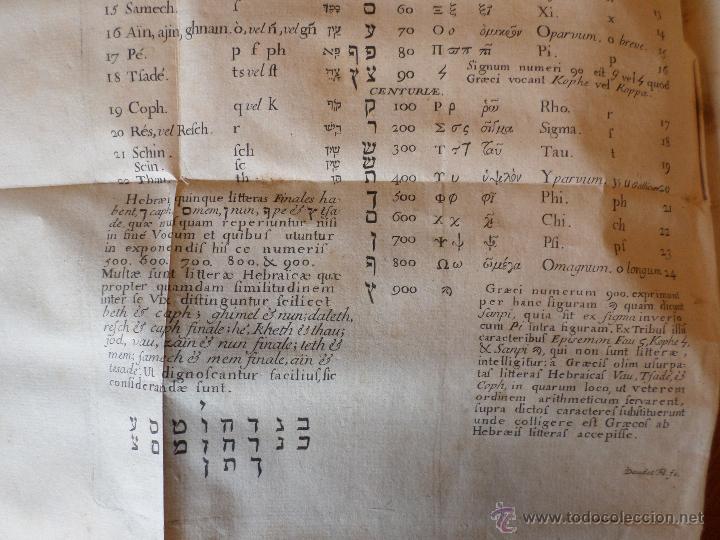 15 Samech. s ס 60 Ξ ξ Xi. x 15
16 Aïn, ajin, ghnam. ò, vel ñ, vel gñ עין ע 70 Ο ο ὀμικρὸν Oparvum. o breve.
17 Pé. p f ph פא פף 80 Π π Pi. p 16
18 Tsadé. ts vel st צדי צץ 90 Signum numeri 90 est vel quod
Græci vocant Kophe vel Koppa.
CENTURIÆ.
19 Coph. q vel K קוף ק 100 Ρ ρ ῥῶ Rho. r 17
20 Rés, vel Resch. r ריש ר 200 Σ σ ς σῖγμα Sigma. s 18
21 Schin. sch שין ש 300 Τ τ ταῦ Tau. t 19
Scin. sc שין
22 Thau. th תו ת 400 Υ υ ὑψιλὸν Yparvum. 20
ך 500 Φ φ φῖ Phi. ph 21
ם 600 Χ χ χῖ Chi. ch 22
ן 700 Ψ ψ ψῖ Psi. ps 23
ף 800 Ω ω ὦμέγα Omagnum. o longum 24
ץ 900
Hebræi quinque litteras Finales ha
bent, ך caph, ם mem, ן nun, ף pe & ץ tsa
de, quæ nusquam reperiuntur nisi
in fine Vocum et quibus utuntur
in exponendis hisce numeris
500. 600. 700. 800. & 900.
Multæ sunt litteræ Hebraicæ quæ
propter quamdam similitudinem
inter se Vix distinguntur scilicet
beth & caph; ghimel & nun; daleth,
resch & caph finale; he, Kheth & thau;
jod, vau, zaïn & nun finale; teth &
mem; samech & mem finale, aïn &
tsadé. Ut dignoscantur facilius, sic
considerandæ sunt.
י
ב נ ד ה ו ט ס ע
כ ג ר ח ז מ ם צ
ך ת ן
Græci numerum 900. exprimunt
per hanc figuram quam dicunt
Sanpi, quia sit ex sigma inverso
cum Pi intra figuram. Ex Tribus illis
caracteribus Episemon Fau ς, Kophe
& Sanpi, qui non sunt litteræ,
intelligitur: à Græcis olim usurpa-
tas litteras Hebraicas Vau, Tsade, &
Coph, in quarum loco, ut veterem
ordinem arithmeticum servarent,
supra dictos caracteres substituerunt
unde colligere est Græcos ab
Hebræis litteras accepisse.
© www.todocoleccion.net